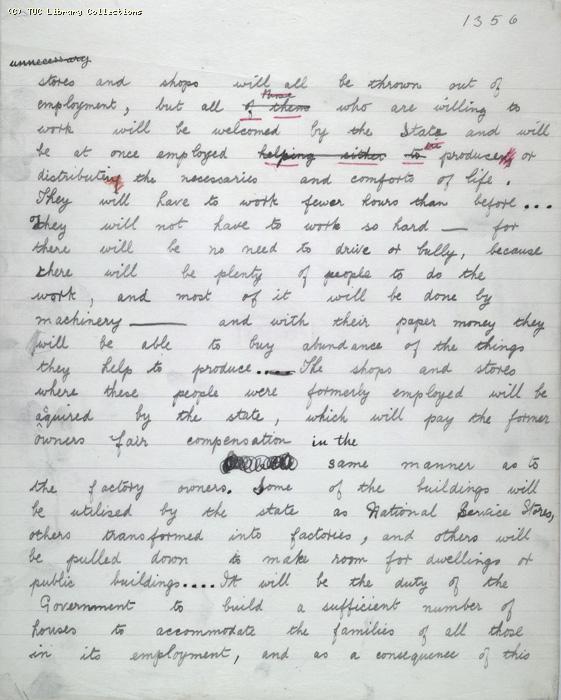 (C) TUC Library Collections
1356
unnecessary
stores and shops will all be thrown out of
employment, but all of them those who are willing to
work will be welcomed by the State and will
be at once employed helping either to produce or
distributing the necessaries and comforts of life.
They will have to work fewer hours than before...
They will not have to work so hard — for
there will be no need to drive or bully, because
there will be plenty of people to do the
work, and most of it will be done by
machinery — and with their paper money they
will be able to buy abundance of the things
they help to produce.... The shops and stores
where these people were formerly employed will be
aquired by the state, which will pay the former
owners fair compensation in the
same manner as to
the factory owners. Some of the buildings will
be utilized by the state as National Service Stores,
others transformed into factories, and others will
be pulled down to make room for dwellings or
public buildings.... It will be the duty of the
Government to build a sufficient number of
houses to accommodate the families of all those
in its employment, and as a consequence of this